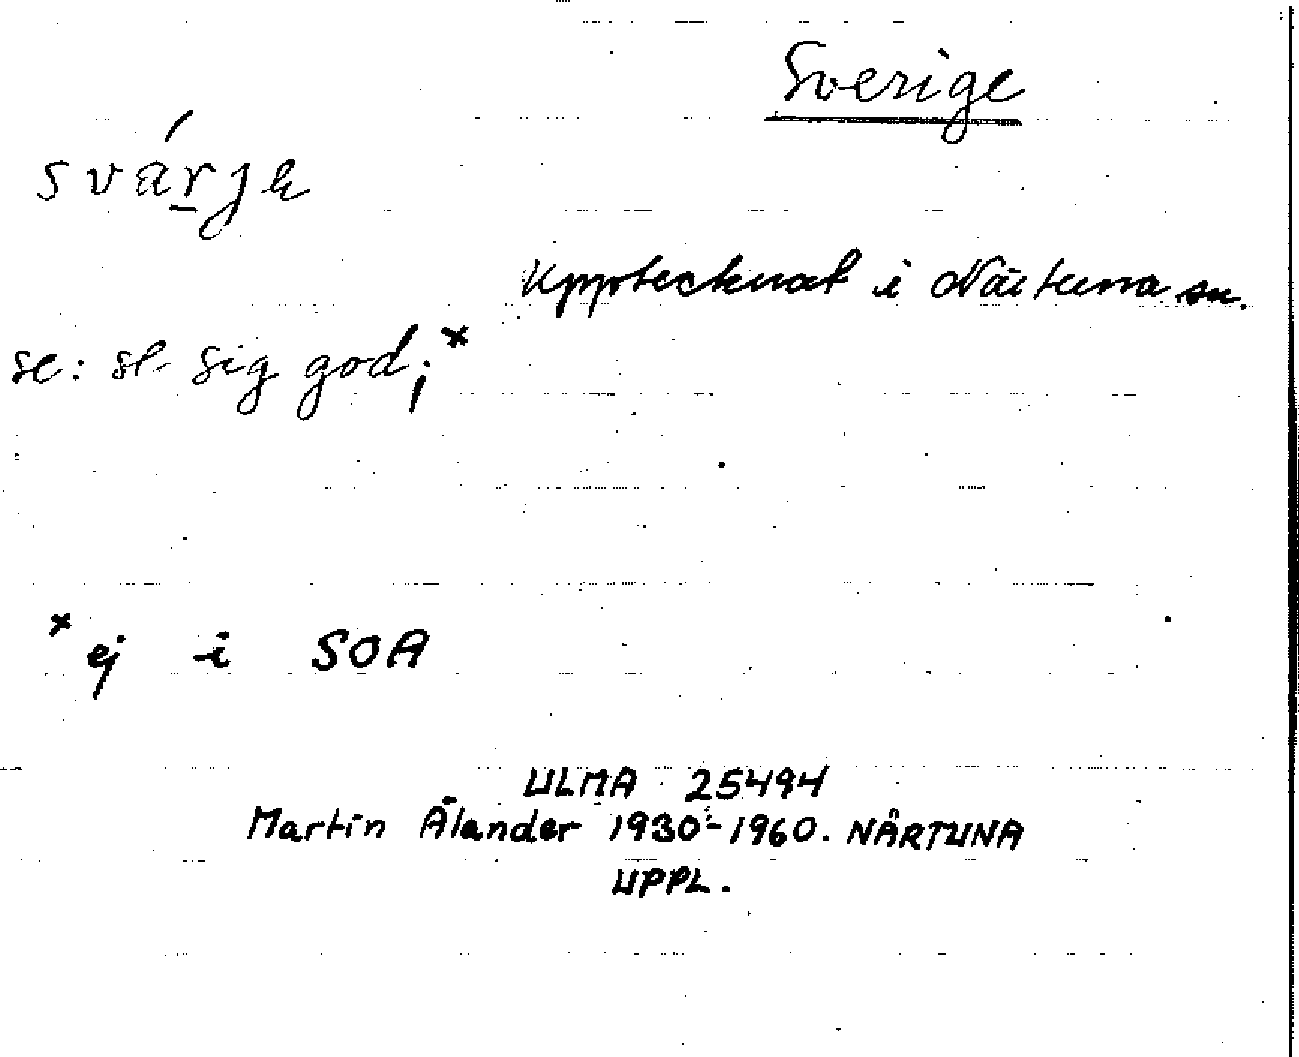 Sverige
svárje
Upptecknat i Närtuna sn.
se: sl- sig god;*
* ej i SOA
ULMA 25494
Martin Ålander 1930-1960. NÄRTUNA
UPPL.